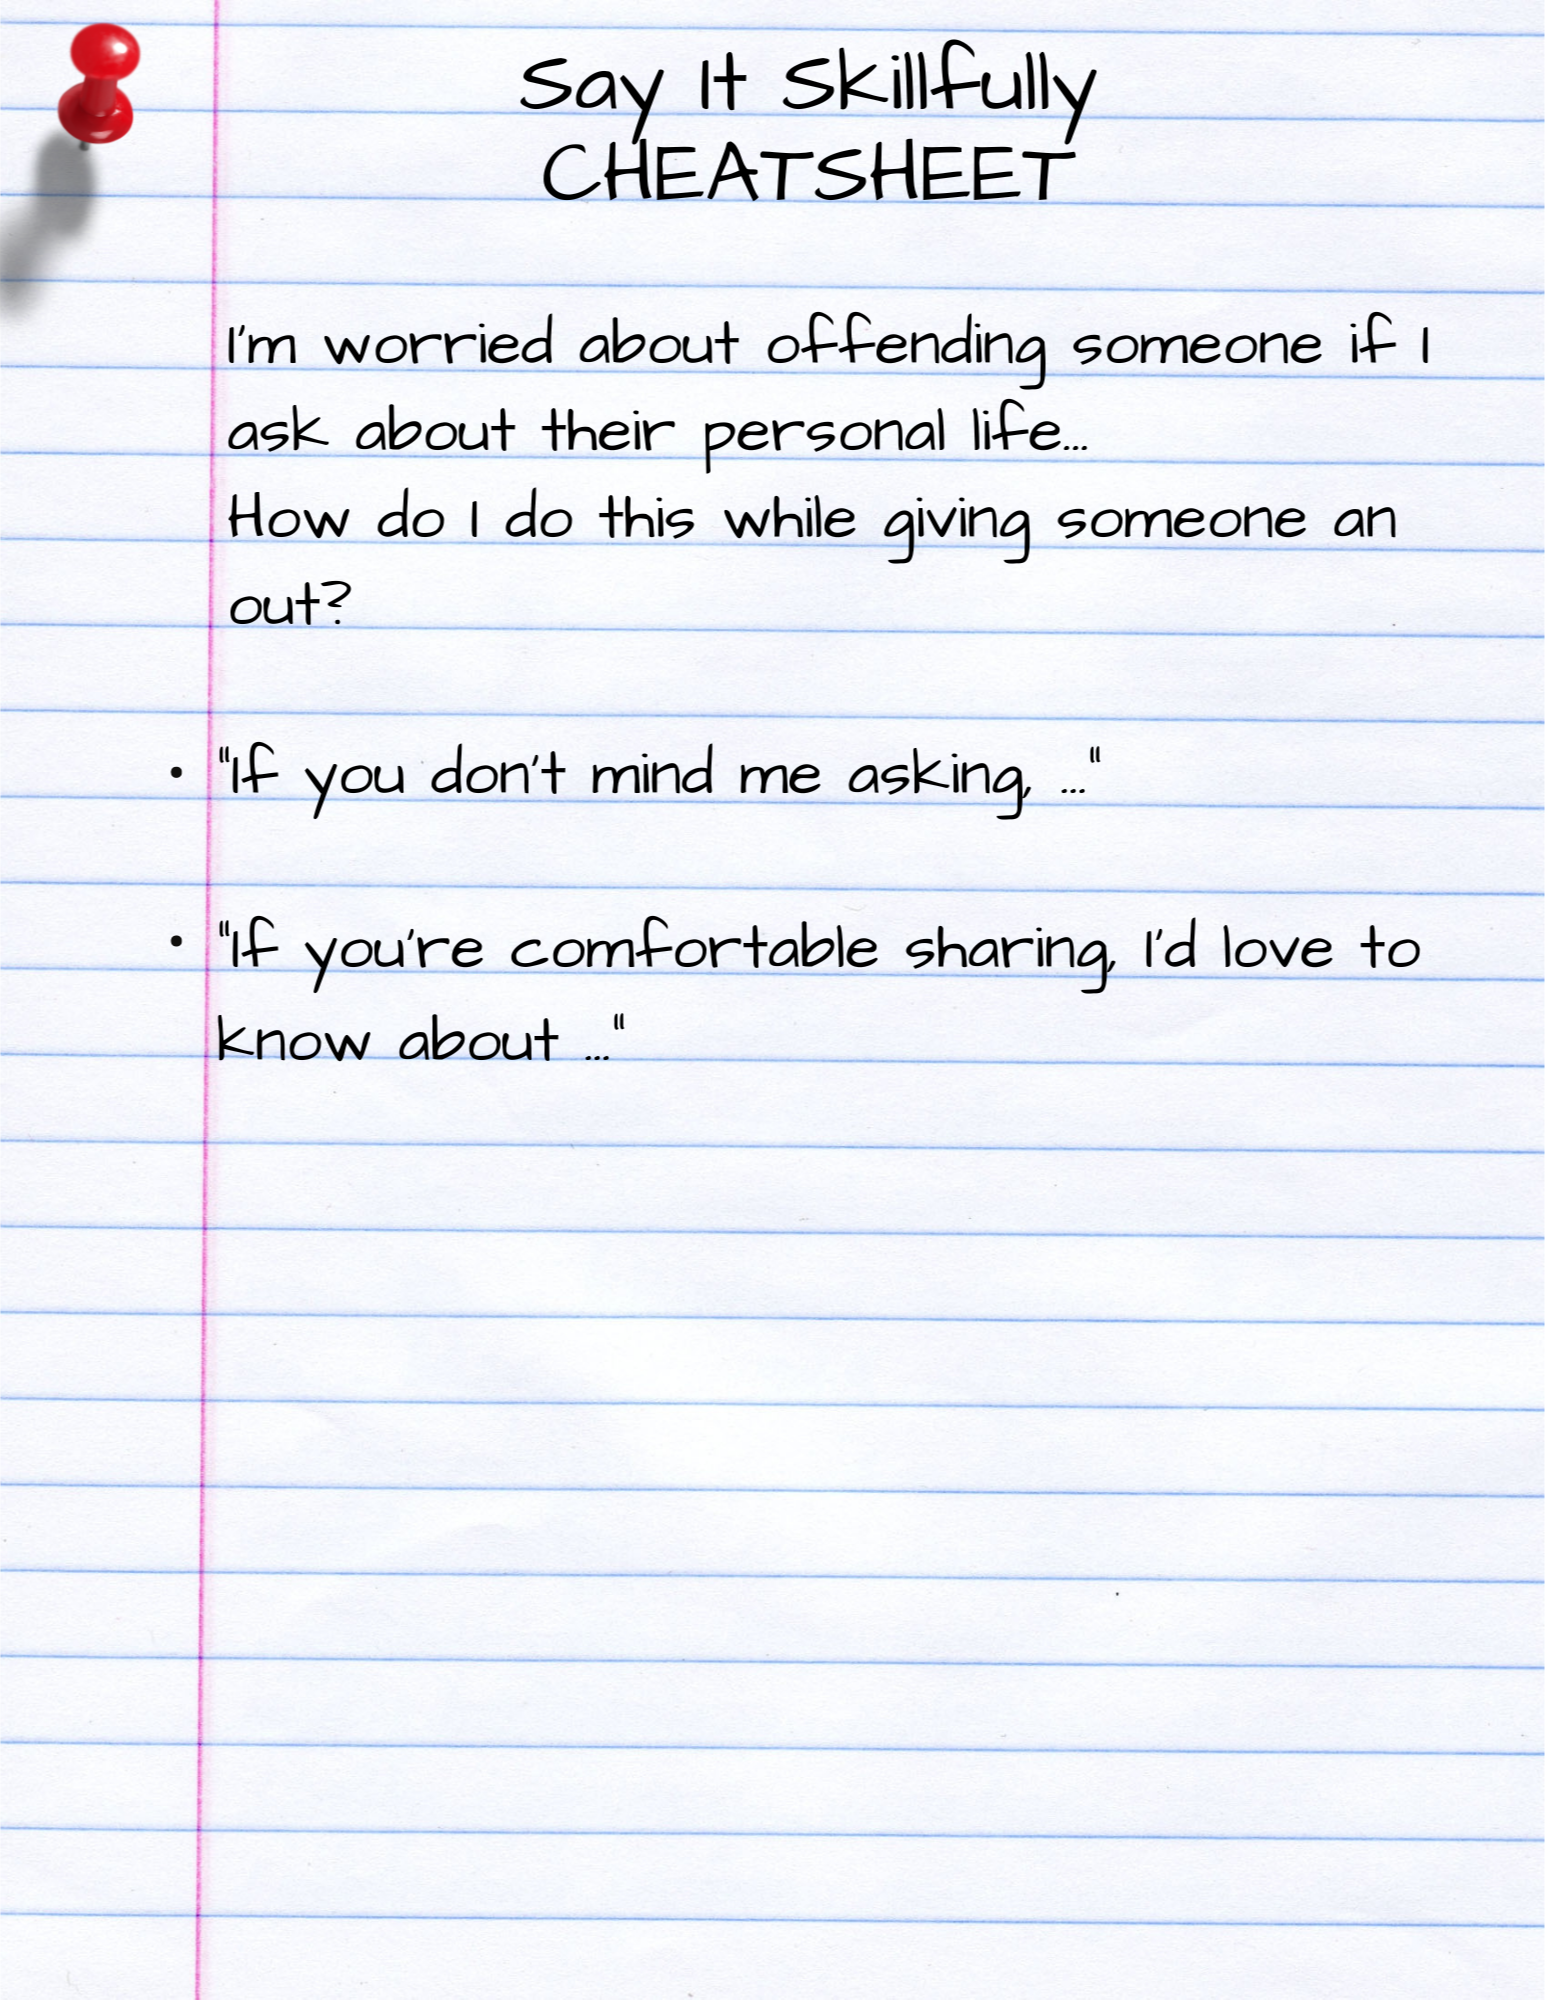 Say It Skillfully
CHEATSHEET
I'm worried about offending someone if I
ask about their personal life...
How do I do this while giving someone an
out?
• "If you don't mind me asking, ..."
• "If you're comfortable sharing, I'd love to
know about ..."